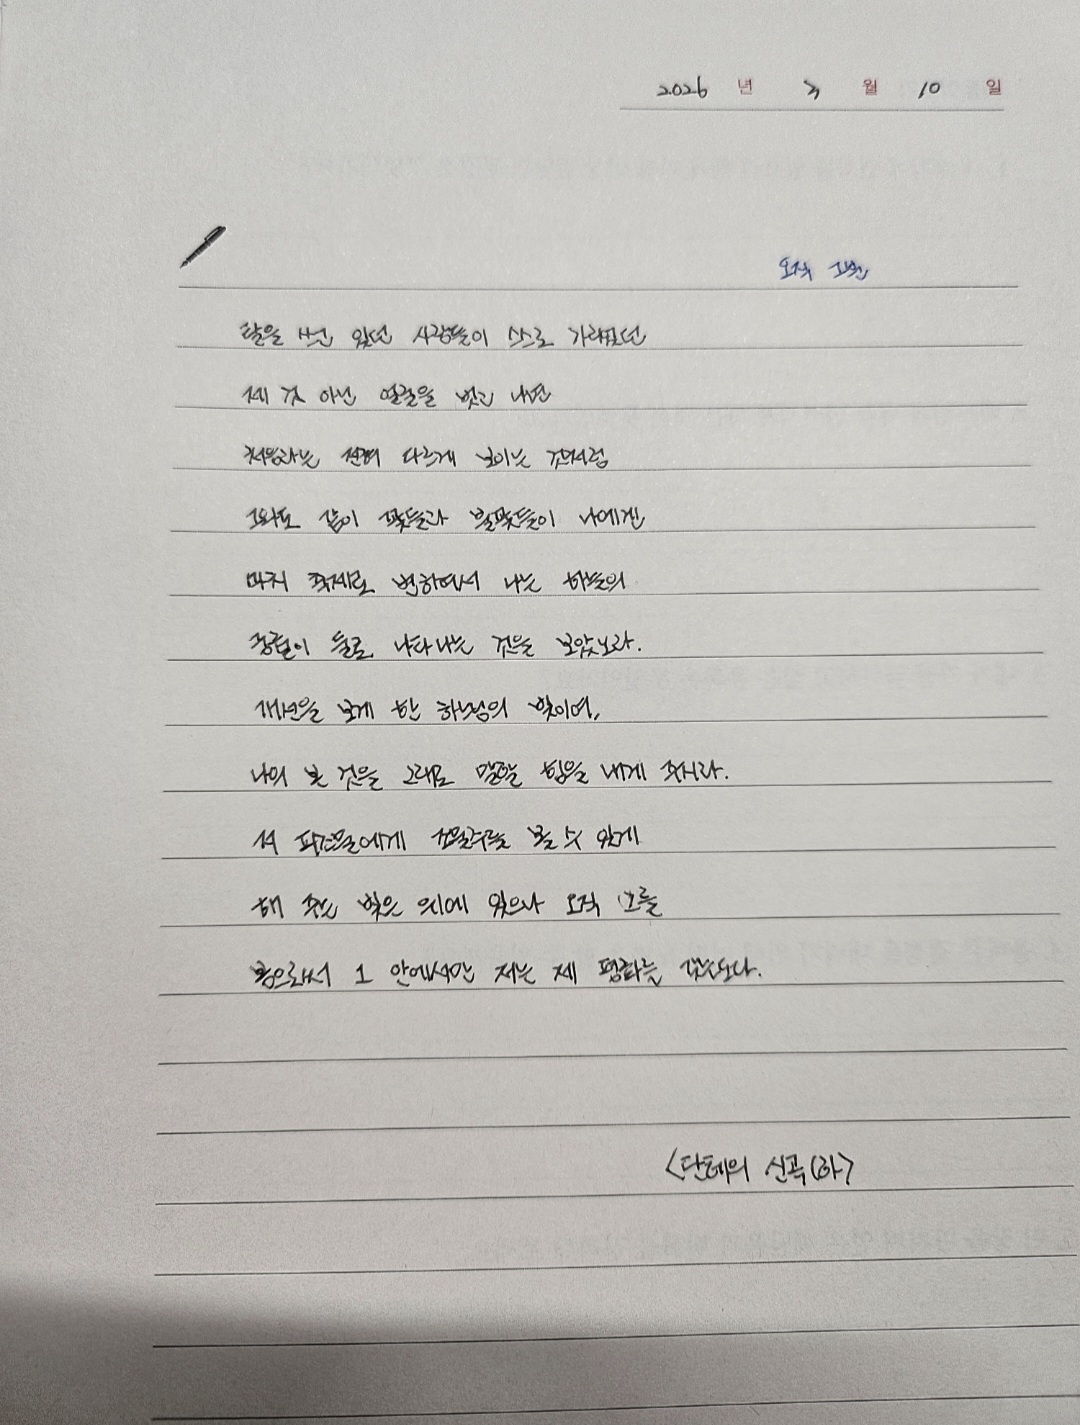 2026 년 3 월 10 일
오직
탈을 쓰고 있던 사람들이 스스로 가리었던
제 것 아닌 얼굴을 벗고 나면
처음과는 전혀 다르게 보이는 것처럼
그와도 같이 꽃들과 불꽃들이 나에겐
마치 축제로 변하여서 나는 하늘의
궁궐이 둘로 나타나는 것을 보았노라.
개선을 보게 한 하느님의 빛이여,
나의 본 것을 그대로 말할 힘을 내게 주시라.
저 피조물에게 조물주를 볼 수 있게
해 주는 빛은 위에 있으나 오직 그를
봄으로써 그 안에서만 저는 제 평화를 갖는도다.
<단테의 신곡(하)>